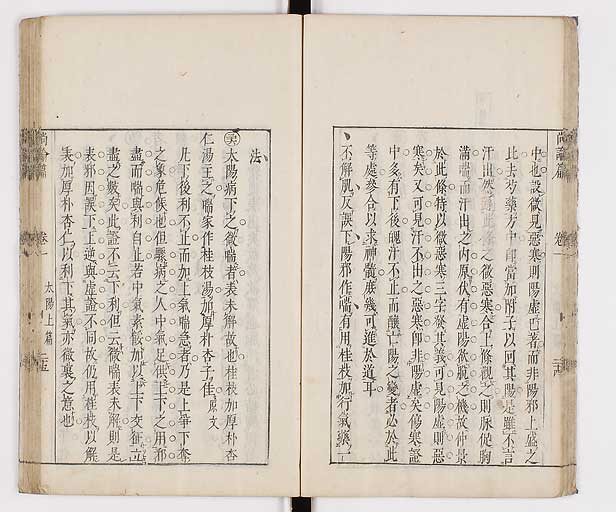 中也設微見惡寒則陽虛已著而非陽邪上盛之
比去芍藥方中即當加附子以可其陽是雖不言
汗出然於此條之微惡寒合上條觀之則脉促胸
滿喘而汗出之內原伏有虛陽欲脫之機故仲景
於此條特以微惡寒三字發其義可見陽虛則惡
寒矣又可見汗不出之惡寒即非陽虛矣傷寒證
中多有下後魄汗不止而釀亡陽之變者必於此
等處參合以求神髓庶幾可進於道耳
不解肌反誤下陽邪作喘有用桂枝加行氣藥一
法
太陽病下之微喘者表未解故也桂枝加厚朴杏
仁湯主之喘家作桂枝湯加厚朴杏子佳原文
凡下後利不止而加上氣喘急者乃是上爭下奪
之象危候也但驟病之人中氣足供上下之用邪
盡而喘與利自止若中氣素餒加以上下交征立
盡之數矣此證不云下利但云微喘表未解則是
表邪因誤下上逆與虛證不同故仍用桂枝以解
表加厚朴杏仁以利下其氣亦微裏之意也
尚論篇 卷一
太陽上篇